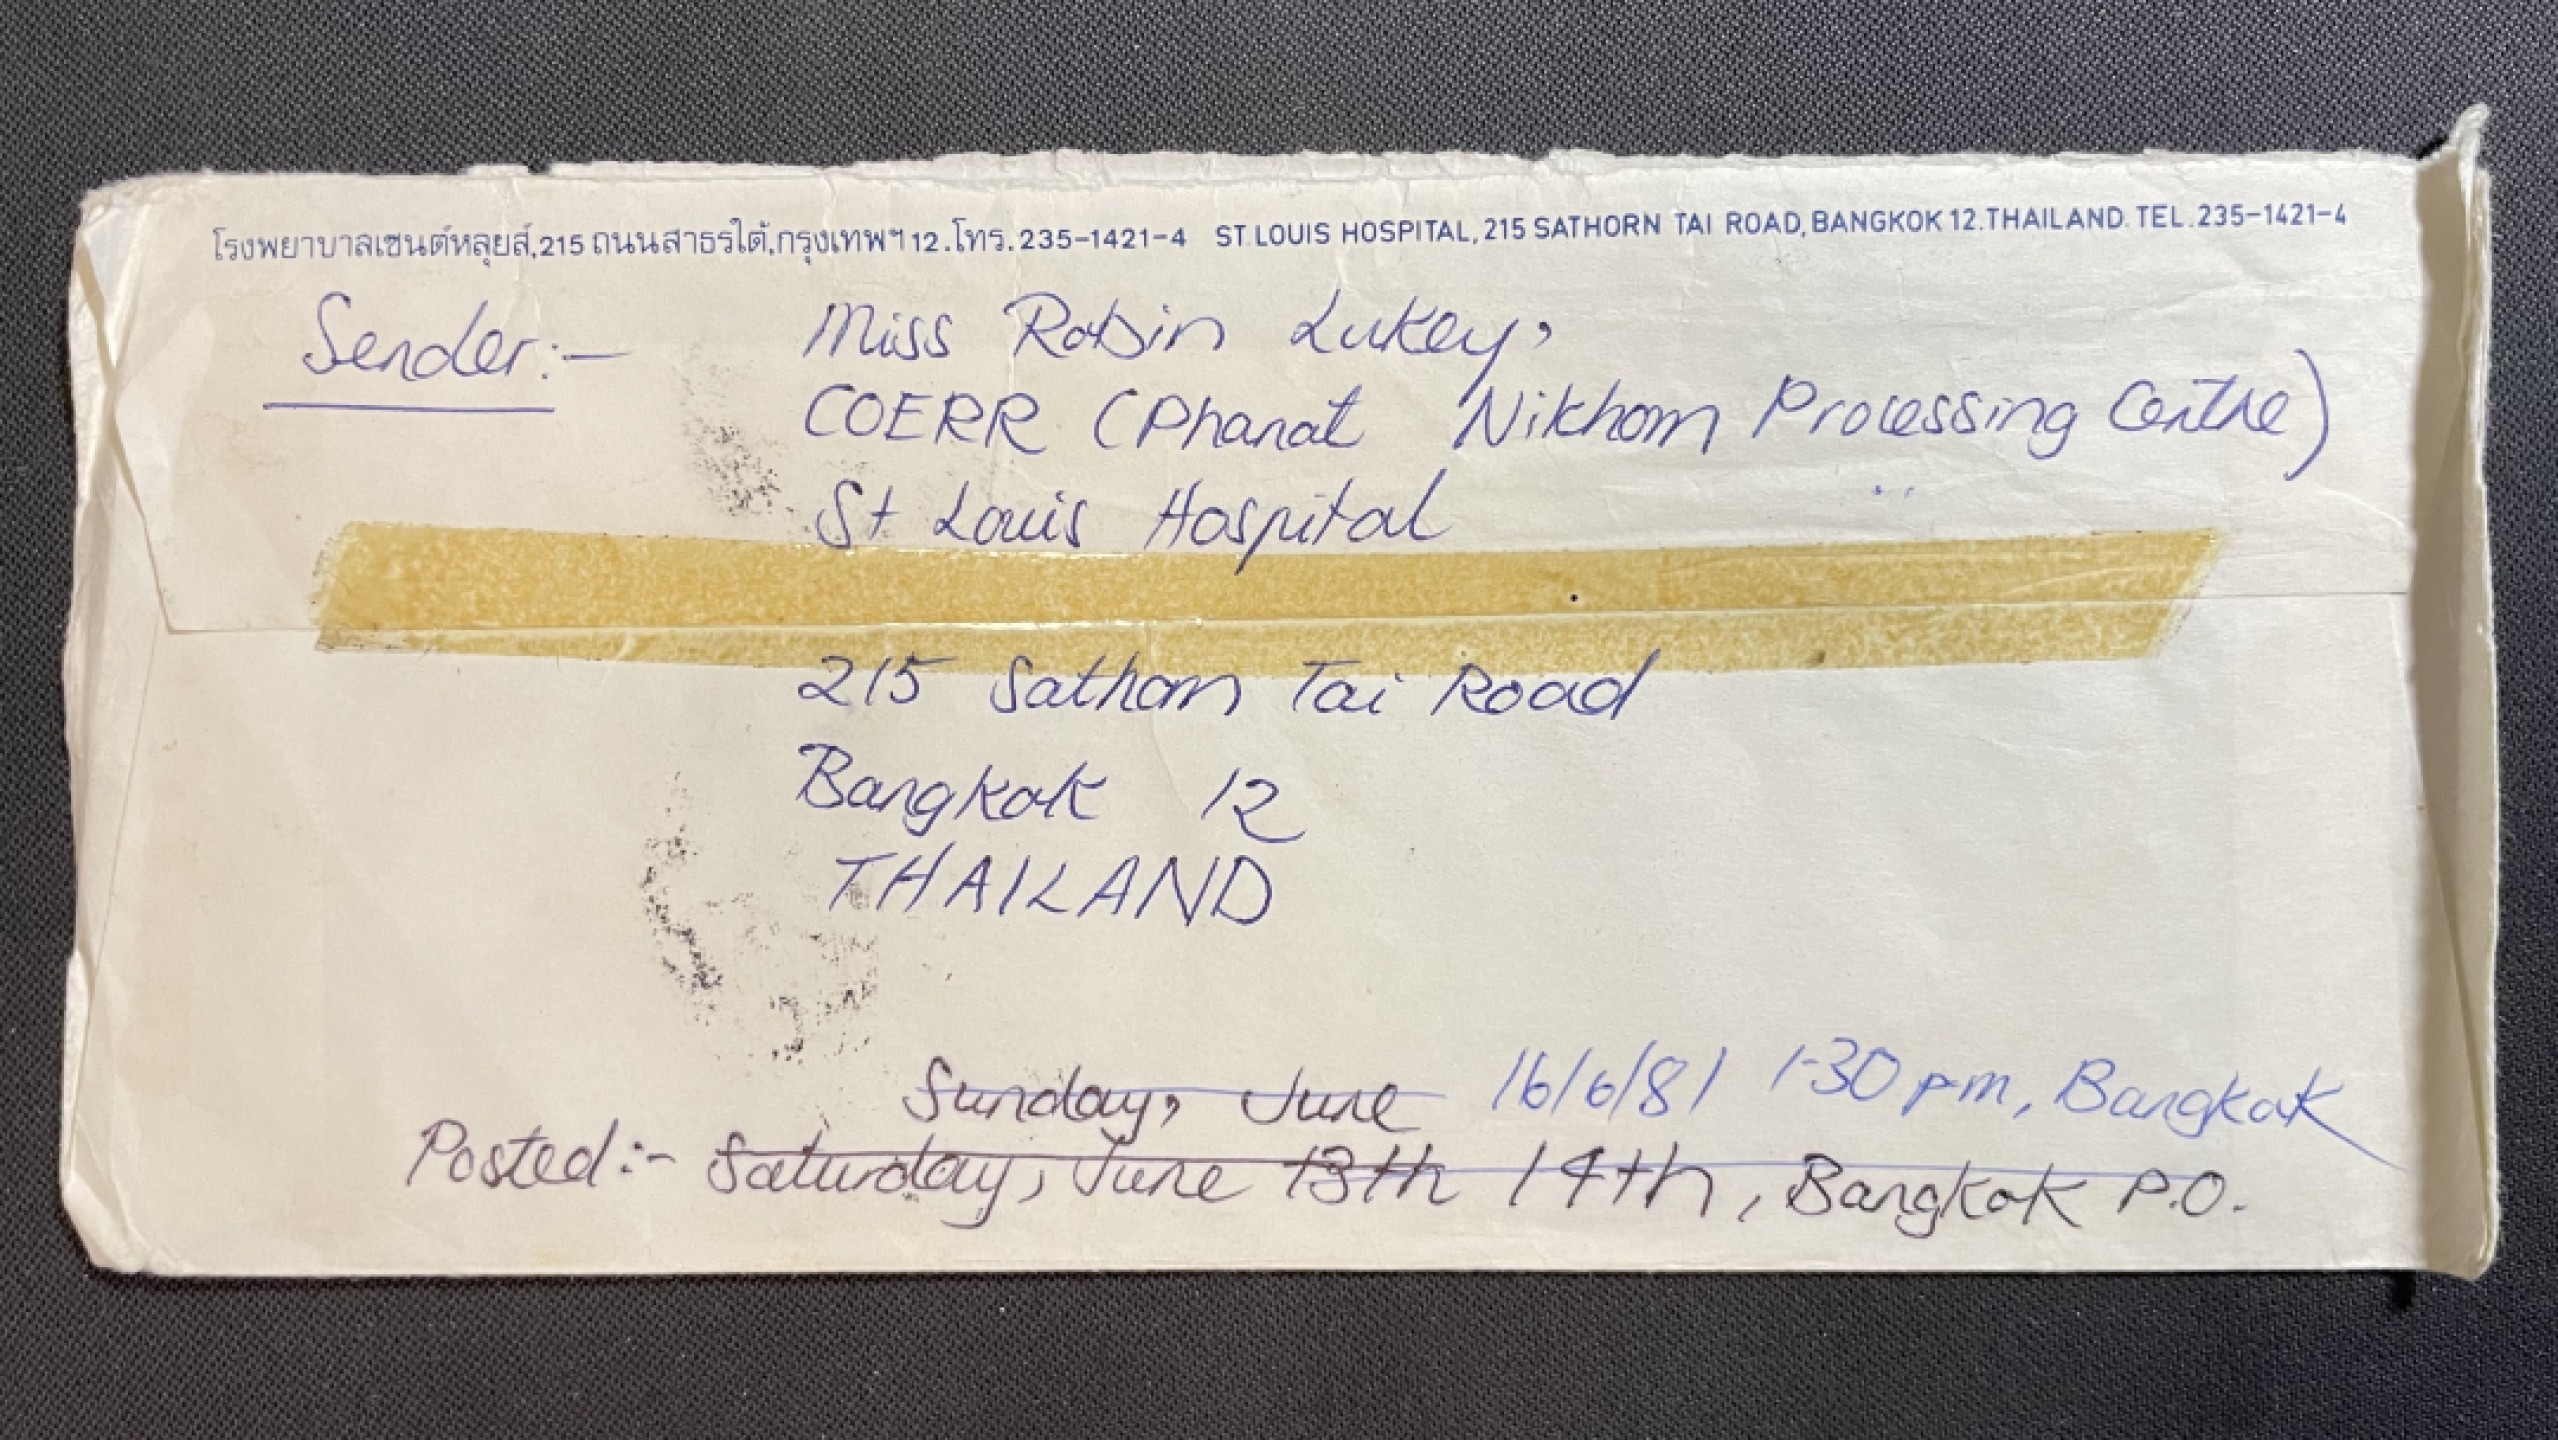 โรงพยาบาลเซนต์หลุยส์,215 ถนนสาธรใต้,กรุงเทพฯ 12.โทร. 235-1421-4 ST. LOUIS HOSPITAL, 215 SATHORN TAI ROAD, BANGKOK 12. THAILAND. TEL. 235-1421-4
Sender:- Miss Robin Lukey,
COERR (Phanat Nikhom Processing Centre)
St Louis Hospital
215 Sathorn Tai Road
Bangkok 12
THAILAND
Sunday, June 16/6/81 1-30 pm, Bangkok
Posted:- Saturday, June 13th 14th, Bangkok P.O.